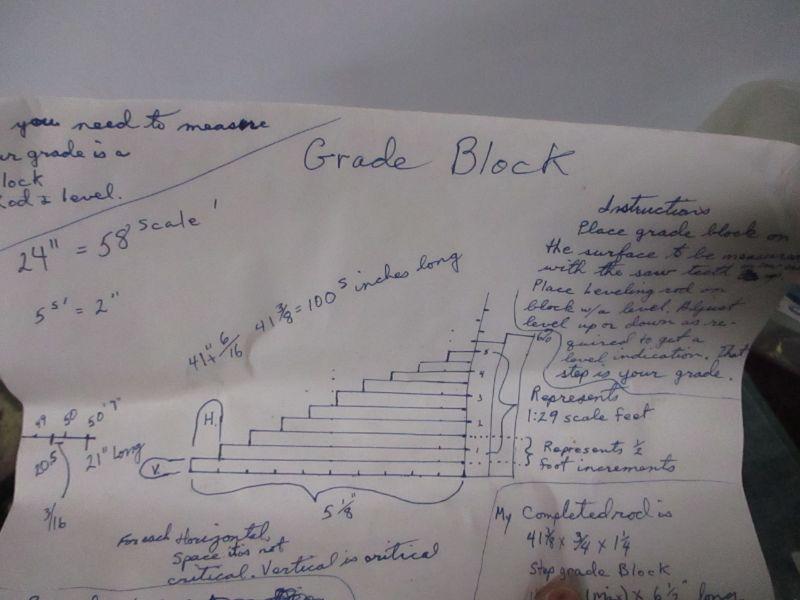 you need to measure
ur grade is a
lock
Rod & level.
Grade Block
24" = 58 scale '
5 s' = 2"
41" 6/16
41 3/8 = 100 s inches long
Instructions
Place grade block on
the surface to be measured
with the saw teeth
Place Leveling rod on
block w/a level. Adjust
level up or down as re-
quired to get a
level indication. That
step is your grade.
%
5
4
3
2
1
Represents
1:29 scale feet
Represents 1/2
foot increments
H.
V.
5 1/8"
49 50 50'
20.5 21" Long
3/16
For each Horizontal
Space it is not
critical. Vertical is critical
My Completed rod is
41 3/8 x 3/4 x 1 1/4
Step grade Block
(max) x 6 1/2" long